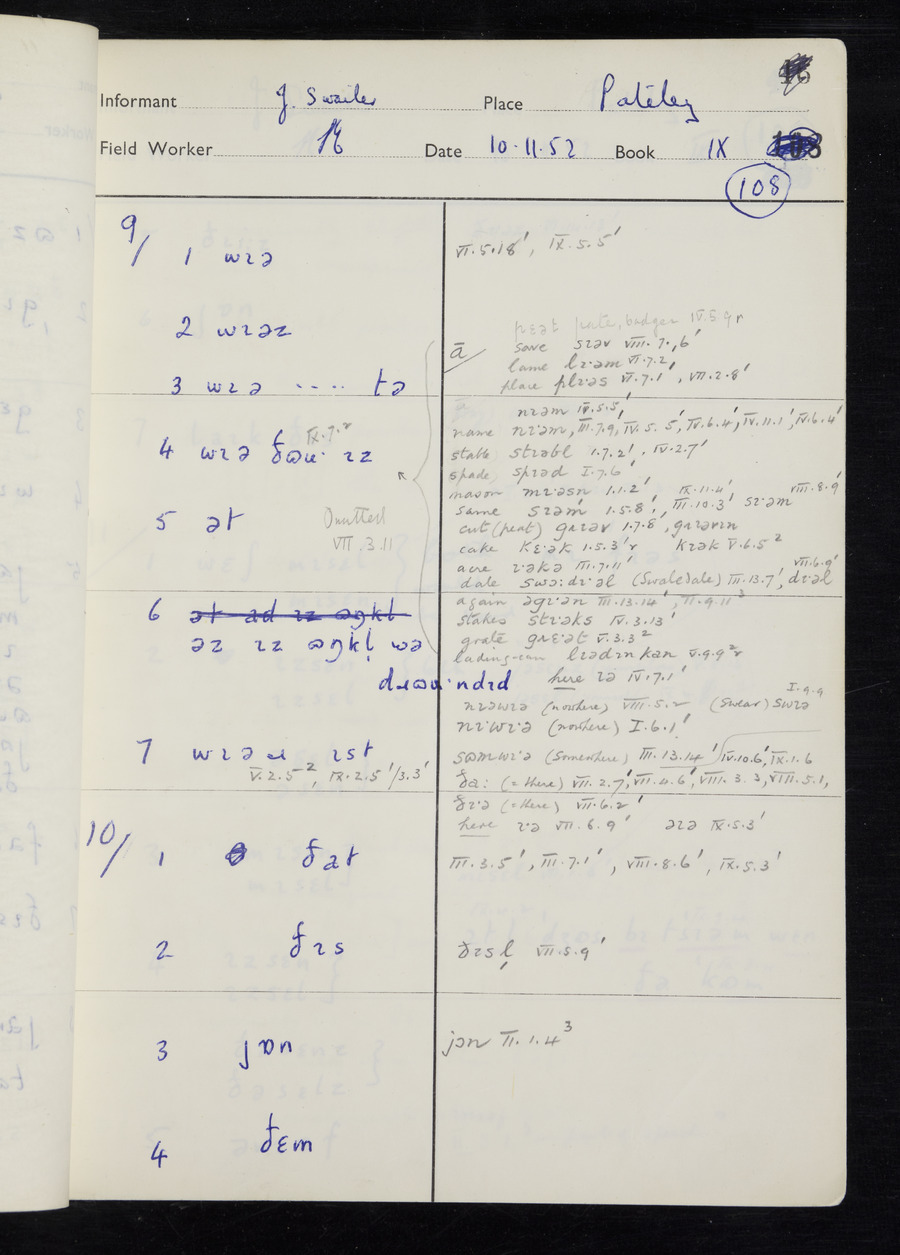 Informant J. Swailes Place Pateley
Field Worker Date 10.11.52 Book IX
108
9/ 1 wɪə
VI.5.18', IX.5.5'
2 wɪəz
3 wɪə .... tə
4 wɪə ðaʊ· ɪz IX.7.2
5 ət Omitted VII.3.11
6 ət ad ɪz ɒŋkl
əz ɪz ɒŋkl̩ wə
dɹaʊ·ndɪd
7 wɪə ɹ ɪst
V.2.5², IX.2.5'/3.3'
pɛət pate, badger IV.5.9r
ā save sɪəv VIII.7.6'
lame lɪ·əm VI.7.2'
place plɪ·əs VI.7.1', VII.2.8'
nɪəm IV.5.5'
name nɪ·əm, III.7.9, IV.5.5', IV.6.4', IV.11.1', IV.6.4'
stable stɪəbl 1.7.2', IV.2.7'
spade spɪəd I.7.6'
mason mɪ·əsn 1.1.2' IX.11.4' VIII.8.9'
same sɪəm 1.5.8', III.10.3' sɪ·əm
cut (peat) gɹɪəv 1.7.8, gɹɪəvɪn
cake kɛ·ək 1.5.3'r kɪək V.6.5²
acre ɪ·əkə III.7.11' VII.6.9'
dale swɔ:dɪ·əl (Swaledale) III.13.7', dɪ·əl
again əgɪ·ən III.13.14', VII.9.11³
stakes stɪ·əks IV.3.13'
grate gɹɛ·ət V.3.3²
lading-can lɪədɪn kan V.9.9²r
here ɪə IV.7.1'
nɪəwɪə (nowhere) VIII.5.2 (swear) swɪə I.9.9
nɪ·wɪə (nowhere) I.6.1'
sɒmwɪ·ə (somewhere) III.13.14' IV.10.6', IX.1.6
ða: (= there) VII.2.7', VII.4.6', VIII.3.3, VIII.5.1,
ðɪ·ə (= there) VII.6.2'
here ɪ·ə VII.6.9' əɪə IX.5.3'
10/ 1 ðat
III.3.5', III.7.1', VIII.8.6', IX.5.3'
2 ðɪs
ðɪsl̩ VII.5.9'
3 jɒn
jɒn II.1.4³
4 ðɛm